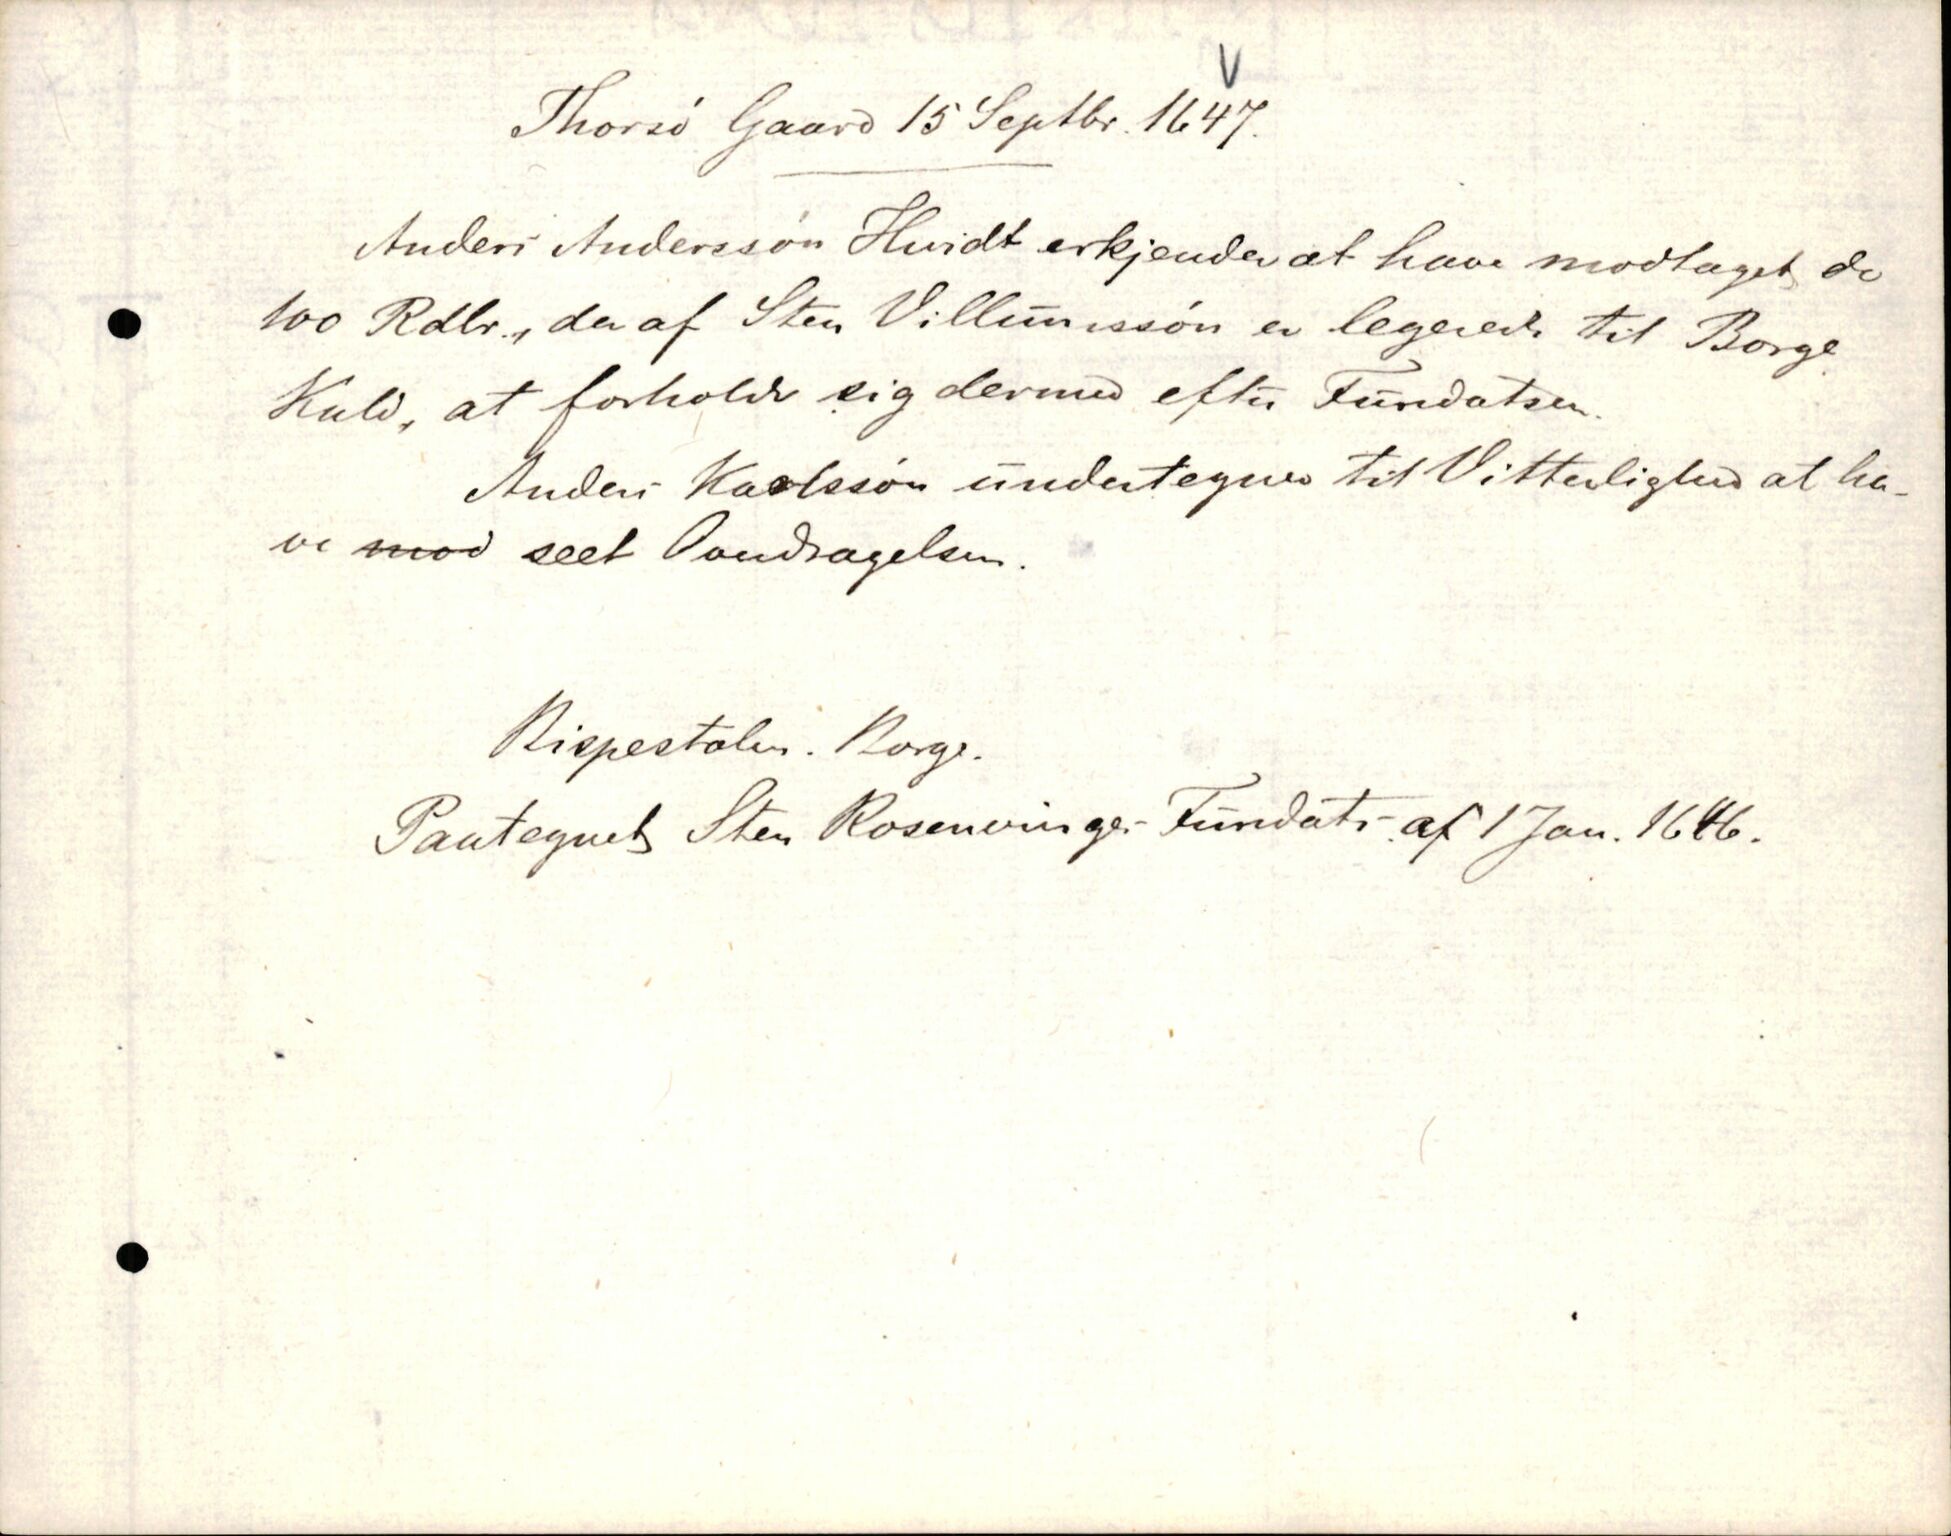 V
Thorsó Gaard 15 Septbr. 1647.
Anders Anderssón Hvidt erkjender at have modtaget de
100 Rdlr., der af Sten Villumssón er legerede til Borge
Kald, at forholde sig dermed efter Fundatsen.
Anders Karlssón undertegner til Vitterlighed at ha-
ve mod seet Ovendragelsen.
Bispestolen. Borge.
Paategnet Sten Rosenvinges Fundats af 1 Jan. 1646.